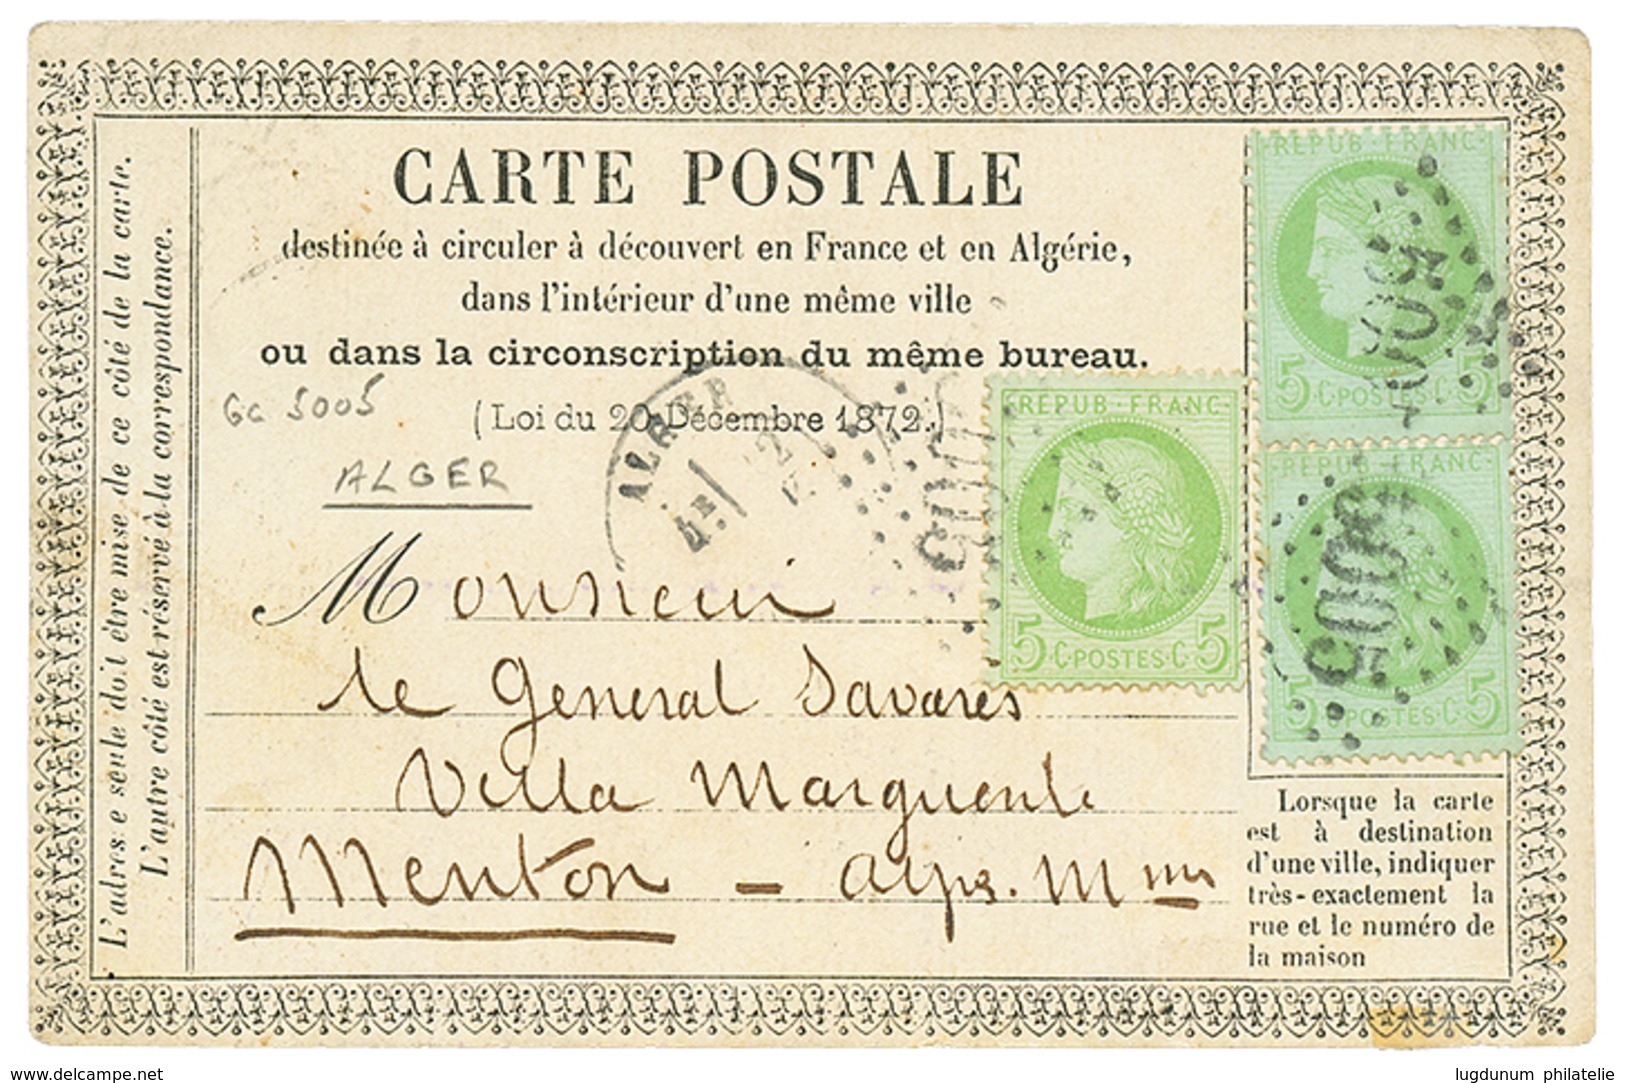 CARTE POSTALE
destinée à circuler à découvert en France et en Algérie,
dans l'intérieur d'une même ville
ou dans la circonscription du même bureau.
(Loi du 20 Décembre 1872.)
GC 5005
ALGER
ALGER
Monsieur
le General Savares
Villa Marguerite
Menton - Alpes. Mmes
L'adresse seule doit être mise de ce côté de la carte.
L'autre côté est réservé à la correspondance.
REPUB·FRANC·
5 C·POSTES·C· 5
5005
REPUB·FRANC·
5 C·POSTES·C· 5
5005
REPUB·FRANC·
5 C·POSTES·C· 5
5005
Lorsque la carte
est à destination
d'une ville, indiquer
très-exactement la
rue et le numéro de
la maison
www.delcampe.net
lugdunum philatelie